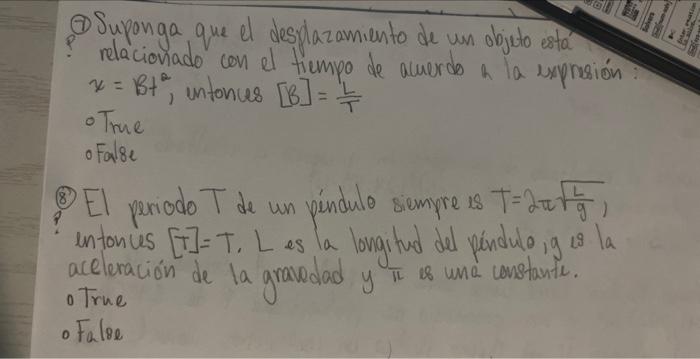 ⑦ Suponga que el desplazamiento de un objeto está
? relacionado con el tiempo de acuerdo a la expresión:
x = Bt², entonces [B] = L/T
o True
o False
⑧ El periodo T de un péndulo siempre es T=2π√(L/g),
? entonces [T]=T. L es la longitud del péndulo, g es la
aceleración de la gravedad y π es una constante.
o True
o False